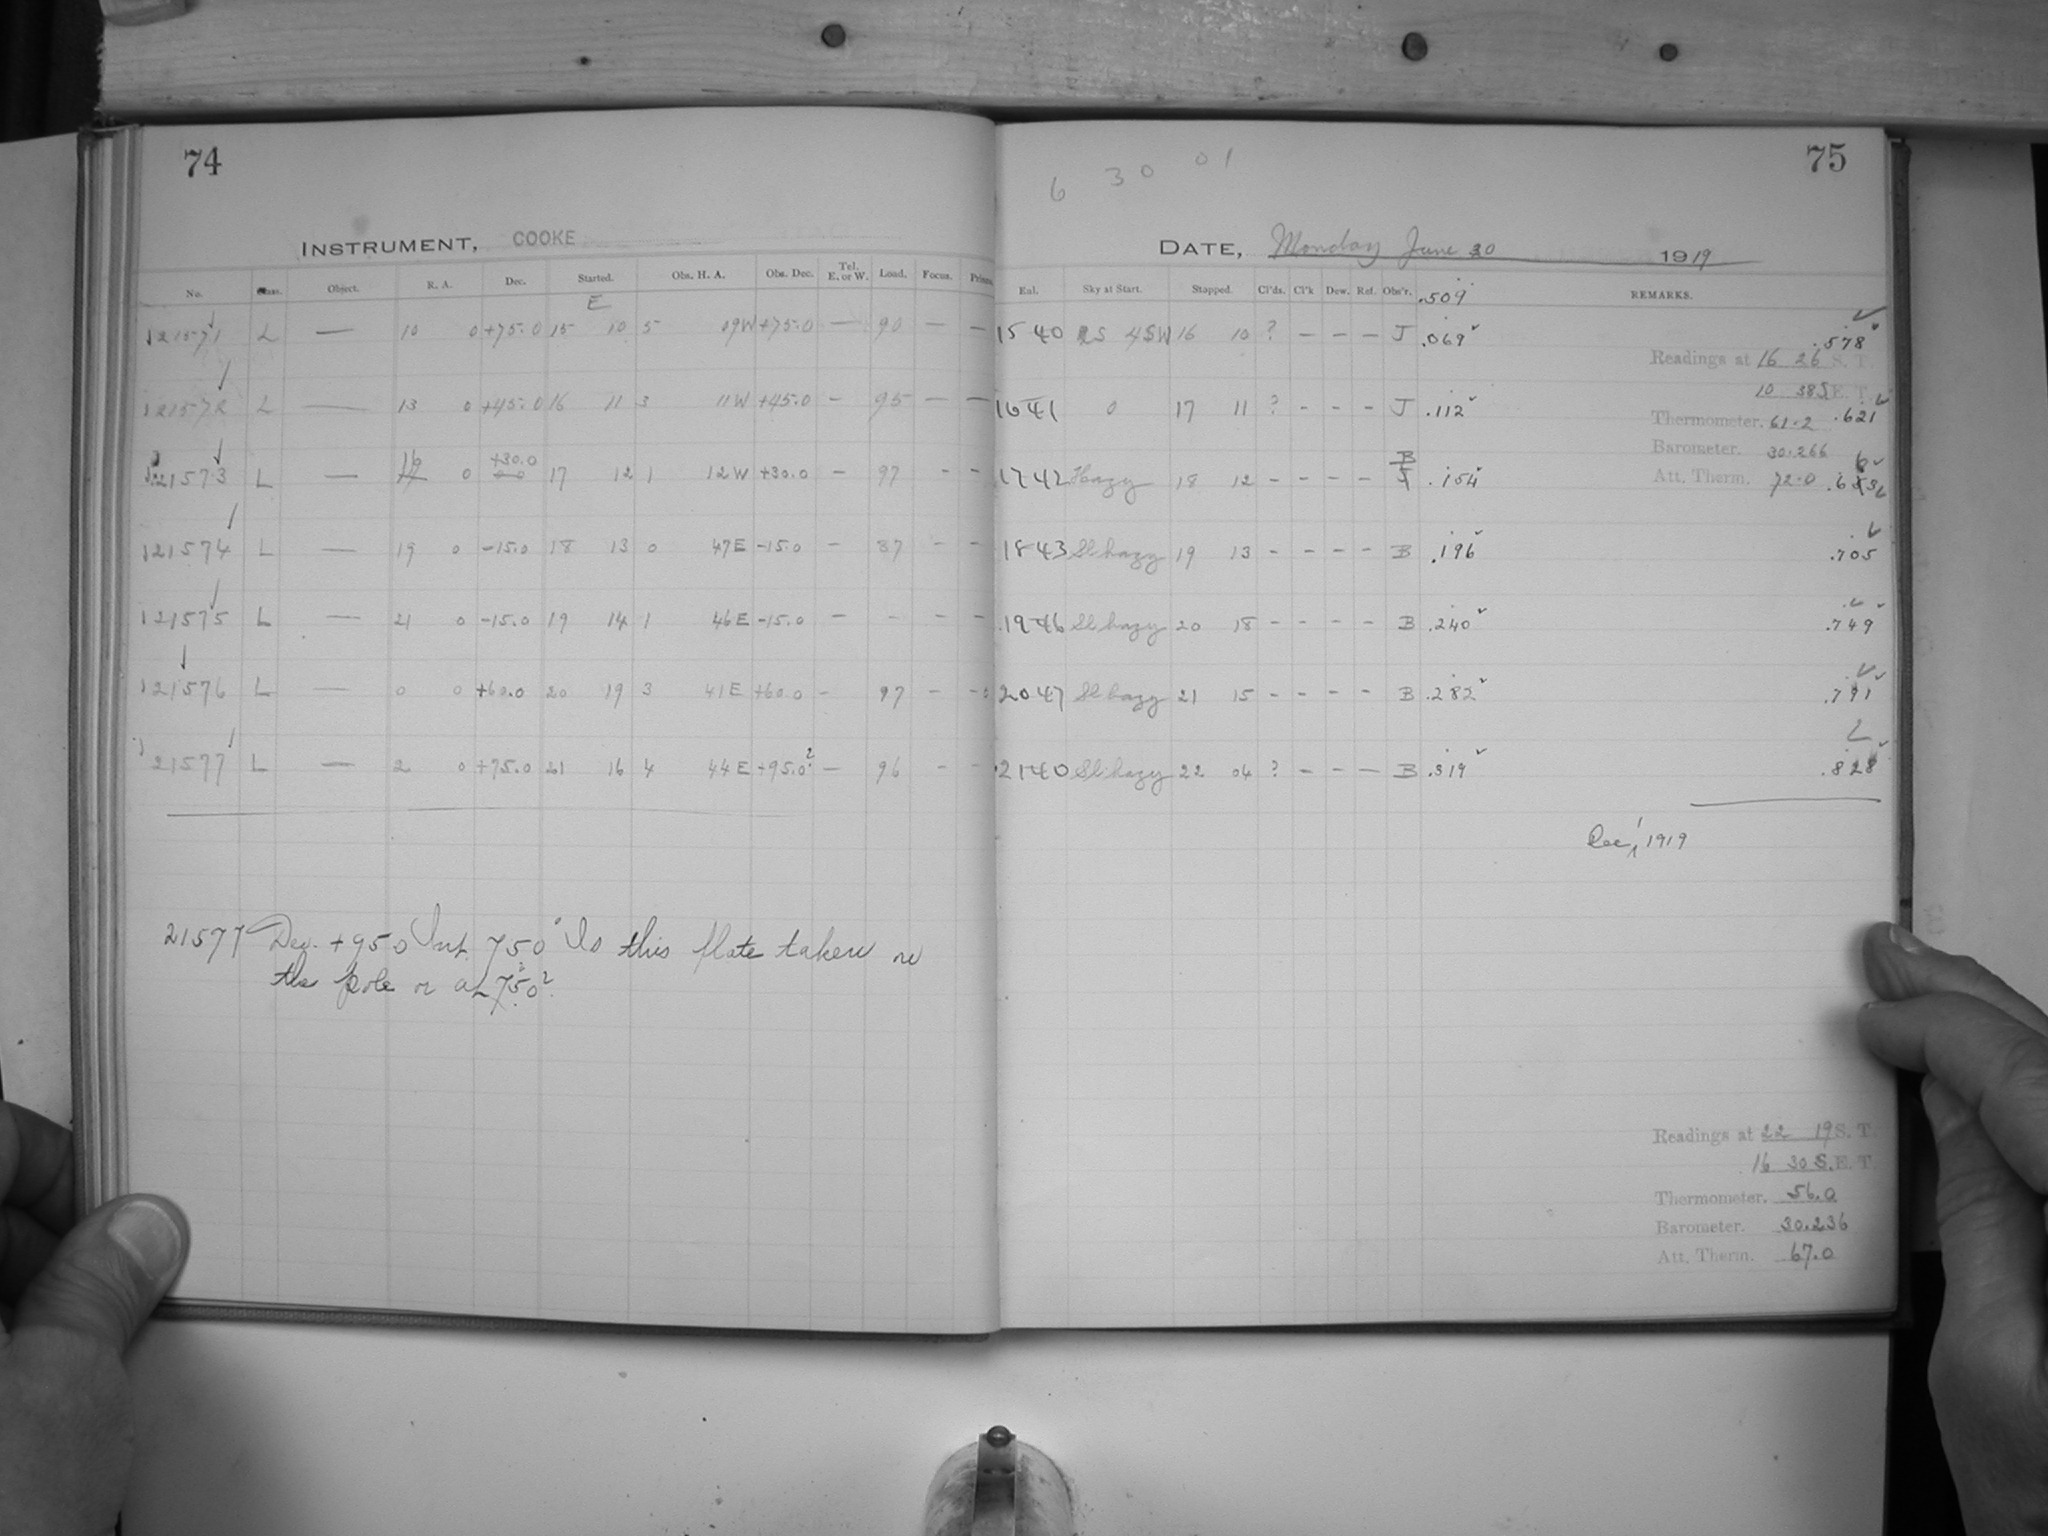 74
INSTRUMENT, COOKE
No. Class. Object. R. A. Dec. Started. Obs. H. A. Obs. Dec. Tel. E. or W. Load. Focus. Prisms
E
21571 L — 10 0 +75.0 15 10 5 09W +75.0 — 90 — —
21572 L — 13 0 +45.0 16 11 3 11W +45.0 - 95 - —
21573 L — 16 0 +30.0 17 12 1 12W +30.0 - 97 - -
21574 L — 19 0 -15.0 18 13 0 47E -15.0 - 87 - -
21575 L — 21 0 -15.0 19 14 1 46E -15.0 - - - -
21576 L — 0 0 +60.0 20 19 3 41E +60.0 - 97 - -
21577 L — 2 0 +75.0 21 16 4 44E +95.0? — 96 - -
21577 Dec. +950 Int 750 Is this plate taken
the pole or at 750?
75
6 30 01
DATE, Monday June 30 1919
Eal. Sky at Start. Stopped. Cl'ds. Cl'k Dew. Ref. Obs'r. .509 REMARKS.
15 40 4SW 16 10 ? - - - J .069 .578
Readings at 16 26 S. T.
10 38 E. T.
16 41 0 17 11 ? - - - J .112 .621
Thermometer. 61.2
Barometer. 30.266
17 42 Hazy 18 12 - - - - B .154
Att. Therm. 72.0
18 43 Sl hazy 19 13 - - - - B .196 .705
19 46 Sl hazy 20 18 - - - - B .240 .749
20 47 Sl hazy 21 15 - - - - B .282 .791
21 40 Sl hazy 22 04 ? - - — B .319 .828
Dec, 1, 1919
Readings at 22 19 S. T.
16 30 S. E. T.
Thermometer. 56.0
Barometer. 30.236
Att. Therm. 67.0